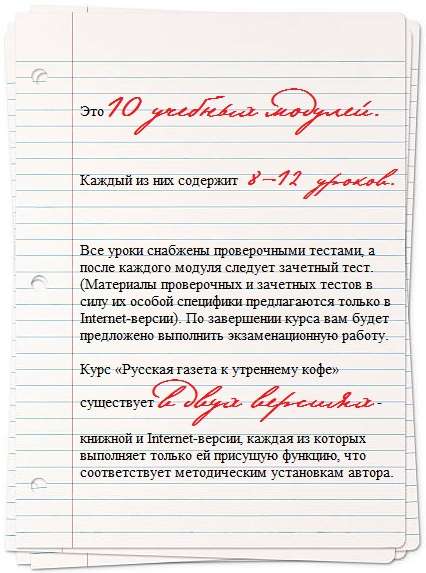 Это 10 учебных модулей.
Каждый из них содержит 8–12 уроков.
Все уроки снабжены проверочными тестами, а
после каждого модуля следует зачетный тест.
(Материалы проверочных и зачетных тестов в
силу их особой специфики предлагаются только в
Internet-версии). По завершении курса вам будет
предложено выполнить экзаменационную работу.
Курс «Русская газета к утреннему кофе»
существует в двух версиях -
книжной и Internet-версии, каждая из которых
выполняет только ей присущую функцию, что
соответствует методическим установкам автора.